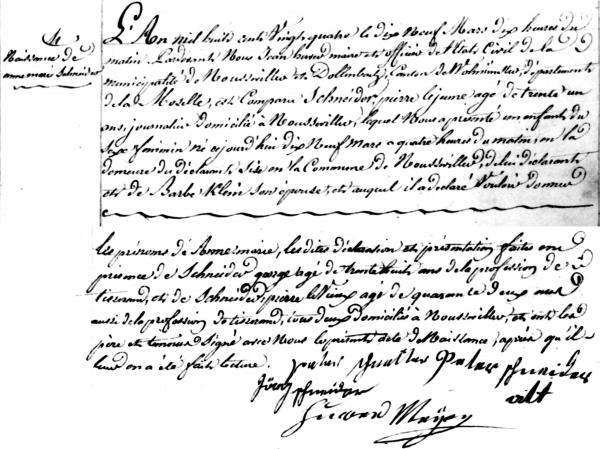 4
Naissance de
anne marie Schneider
L'An mil huit cent Vingt quatre le dix Neuf Mars dix heures du
matin Pardevant Nous Jean maire et officier de l'état Civil de la
municipalité de Nousseviller et Dollenbach, Canton de Volmunster, département
de la Moselle, est Comparu Schneider pierre le jeune agé de trente un
ans, journalier domicilié à Nousseviller, lequel Nous a présenté un enfant du
sexe féminin né cejourd'hui dix Neuf Mars a quatre heures du matin, en la
demeure du déclarant Sise en la Commune de Nousseviller, de lui déclarant
et de Barbe Klein Son épouse, et auquel il a déclaré Vouloir donner
les prénoms de Anne marie, les dites déclaration et présentation faites en
présence de Schneider george agé de trente huit ans de la profession de
tisserand, et de Schneider pierre le Vieux agé de quarante deux ans
aussi de la profession de tisserand, tous deux domiciliés à Nousseviller, et ont les
père et temoins Signé avec Nous le présent acte de Naissance, après qu'il
leur en a été fait lecture.
Peter Schneider
Jörg Schneider
alt